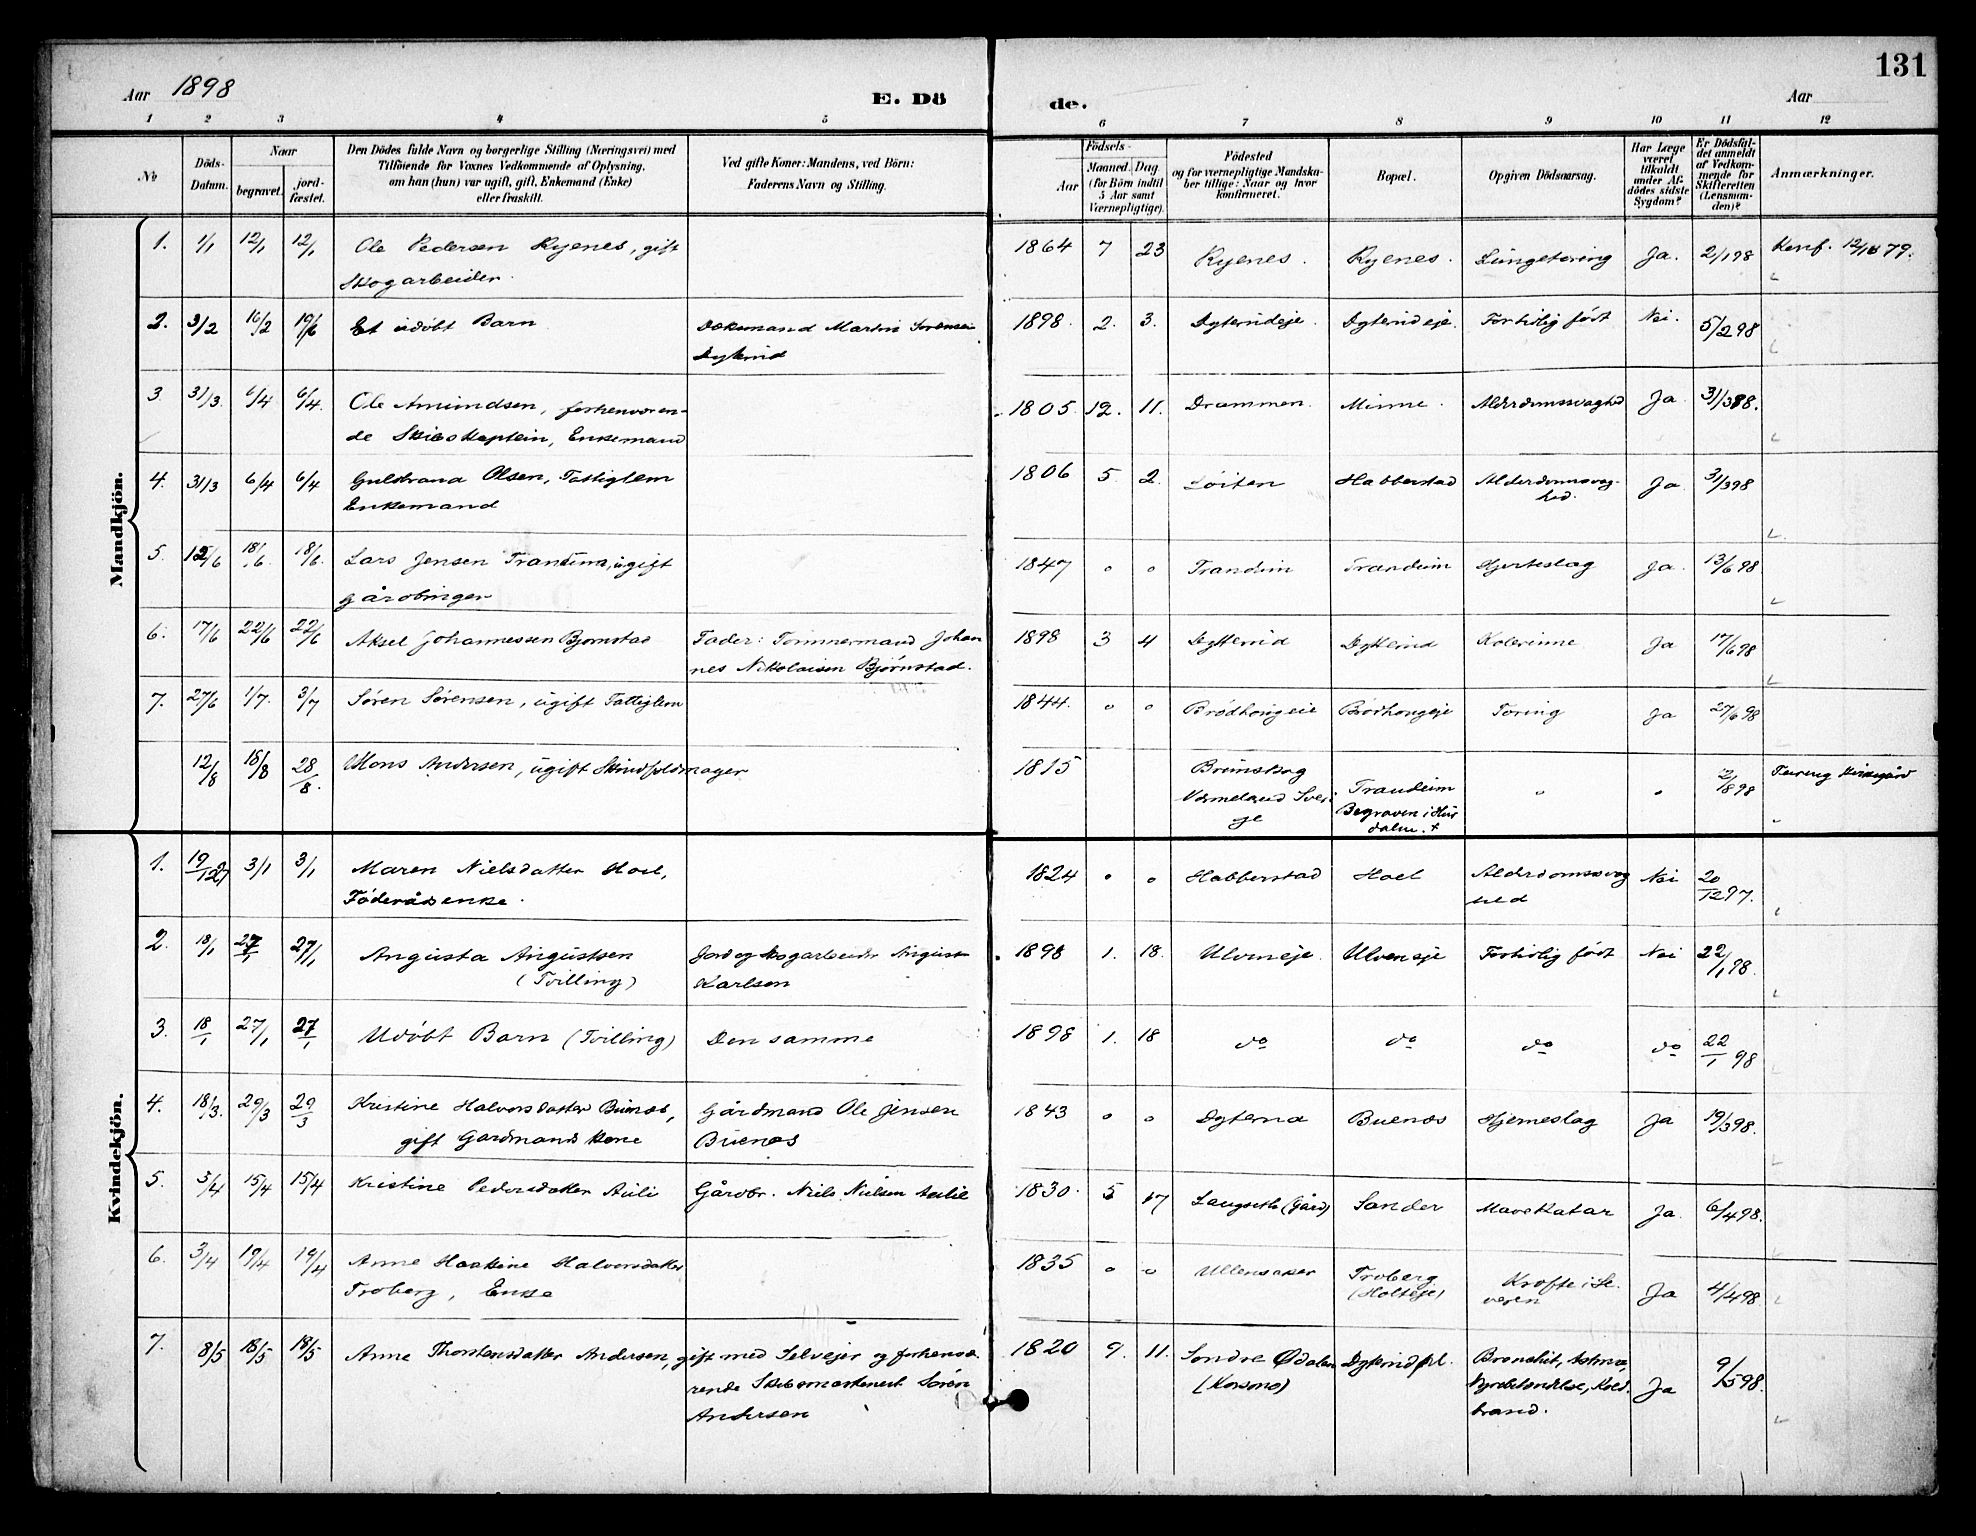 131
Aar 1898
E. Dö de.
Aar
1 2 3 4 5 6 7 8 9 10 11 12
No
Döds-Datum.
Naar begravet. jord-fæstet.
Den Dödes fulde Navn og borgerlige Stilling (Næringsvei) med Tilföiende for Voxnes Vedkommende af Oplysning, om han (hun) var ugift, gift, Enkemand (Enke) eller fraskilt.
Ved gifte Koner: Mandens, ved Börn: Faderens Navn og Stilling.
Födsels- Aar Maaned. Dag. (for Börn indtil 5 Aar samt Værnepligtige).
Födested og for værnepligtige Mandskaber tillige: Naar og hvor konfirmeret.
Bopæl.
Opgiven Dödsaarsag.
Har Læge været tilkaldt under Afdödes sidste Sygdom?
Er Dödsfaldet anmeldt af Vedkommende for Skifteretten (Lensmanden)?
Anmærkninger.
Mandkjön.
1. 1/1 12/1 12/1 Ole Pedersen Ryenes, gift 1864 7 23 Ryenes. Ryenes. Lungetæring Ja. 2/1 98 Konf. 12/10 79.
Skogarbeider.
2. 3/2 16/2 19/6 Et udøbt Barn Martin Sørensen 1898. 2. 3. Dyterudeje Dyterudeje. Fortidlig født Nei. 5/2 98
3 31/3 6/4 6/4. Ole Amundsen, forhenværen- 1805. 12. 11. Drammen. Minne. Alderdomssvaghed Ja 31/3 98.
de Skibskaptein, Enkemand
4. 31/3 6/4 6/4 Guldbrand Olsen, Fattiglem 1806 5 2. Løiten Habberstad Alderdomssvag- Ja 31/3 98
Enkemand hed.
5. 12/6 18/6. 18/6. Lars Jensen Trandum, ugift 1847 0 0 Trandum Trandum Hjerteslag Ja. 13/6 98
gårdbruger
6. 17/6 22/6 22/6 Aksel Johannessen Bjørnstad Fader: Tømmermand Johan 1898 3 4 Dytterud Dytterud Kolerine Ja 17/6 98
nes Nikolaisen Bjørnstad.
7. 27/6 1/7. 3/7 Søren Sørensen, ugift Fattiglem 1844. 0 0 Brødhongeie Brødhongeje Tæring Ja 27/6 98
12/8 16/8 28/8. Mons Andersen, ugift Skindfeldmager 1815 Brunskog Trandum 0 0 /8 98 Kirkegård
Værmeland Sveri Begraven i Hur
ge dalen. +
Kvindekjön.
1. 19/12 97 3/1 3/1 Maren Nielsdatter Hoel, 1824 0 0 Habberstad Hoel Alderdomssvag Nei 20/12 97.
Føderådsenke. hed
2. 18/1 27/1 27/1 Augusta Augustsen Jord og skogarbeider August 1898 1. 18. Ulveneje. Ulveneje Fortidlig født Nei 22/1 98.
(Tvilling) Karlsen
3. 18/1 27/1 27/1 Udøbt Barn (Tvilling) Den samme 1898 1. 18 do do do do 22/1 98
4. 18/3. 29/3 29/3 Kristine Halvorsdatter Buenæs, Gårdmand Ole Jensen 1843 0 0 Dyterud Buenæs Hjerneslag Ja 19/3 98.
gift Gårdmands kone Buenæs
5. 3/4 15/4 15/4 Kristine Pedersdatter Auli Gårdbr. Niels Nielsen Aulie 1830. 5 17 Langseth (Gård) Sander Mavekatar Ja. 6/4 98.
6. 3/4 19/4 19/4 Anne Halvorsdatter 1835 0 0 Ullensaker Troberg Kræfte i Le- Ja 4/4 98
Troberg, Enke (Holteje) veren
7. 8/5 18/5 18/5 Anne Thorstensdatter Andersen, gift med Selvejer og forhenvæ- 1820 9. 11. Søndre Ødalen Dyterud pl. Bronchit, Astma, Ja 9/5 98.
rende Søren (Korsmo) Nyrebetændelse, Kold-
Andersen brand.